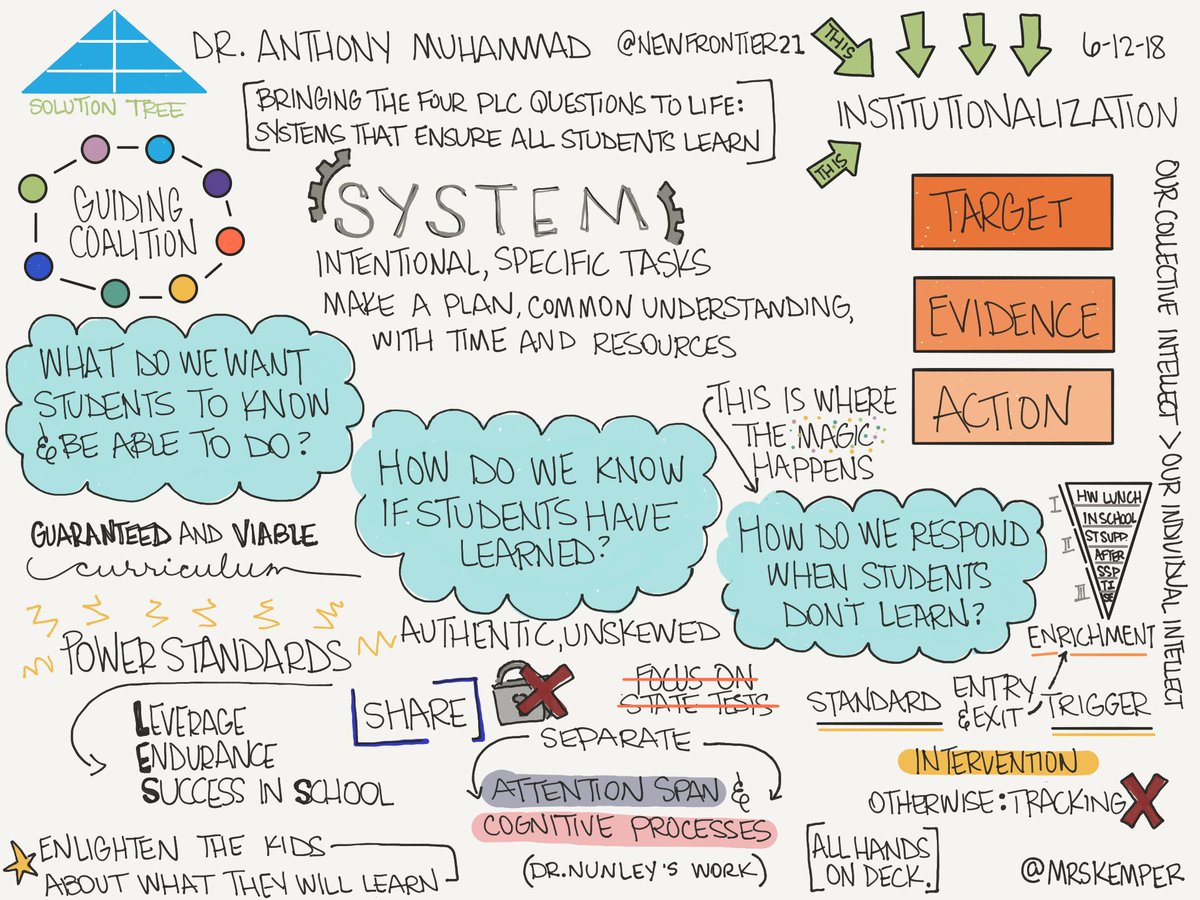 SOLUTION TREE
DR. ANTHONY MUHAMMAD @NEWFRONTIER21
6-12-18
[BRINGING THE FOUR PLC QUESTIONS TO LIFE:
SYSTEMS THAT ENSURE ALL STUDENTS LEARN]
THIS
INSTITUTIONALIZATION
THIS
GUIDING
COALITION
SYSTEM
INTENTIONAL, SPECIFIC TASKS
MAKE A PLAN, COMMON UNDERSTANDING,
WITH TIME AND RESOURCES
TARGET
EVIDENCE
ACTION
OUR COLLECTIVE INTELLECT > OUR INDIVIDUAL INTELLECT
WHAT DO WE WANT
STUDENTS TO KNOW
& BE ABLE TO DO?
GUARANTEED AND VIABLE
curriculum
POWER STANDARDS
LEVERAGE
ENDURANCE
SUCCESS IN SCHOOL
ENLIGHTEN THE KIDS
ABOUT WHAT THEY WILL LEARN
HOW DO WE KNOW
IF STUDENTS HAVE
LEARNED?
AUTHENTIC, UNSKEWED
[SHARE]
FOCUS ON
STATE TESTS
SEPARATE
ATTENTION SPAN &
COGNITIVE PROCESSES
(DR. NUNLEY'S WORK)
THIS IS WHERE
THE MAGIC
HAPPENS
HOW DO WE RESPOND
WHEN STUDENTS
DON'T LEARN?
I
II
III
HW LUNCH
IN SCHOOL
ST SUPP.
AFTER
SSP
T.I
SE
ENRICHMENT
STANDARD
ENTRY
& EXIT
TRIGGER
INTERVENTION
OTHERWISE: TRACKING
[ALL HANDS
ON DECK.]
@MRSKEMPER